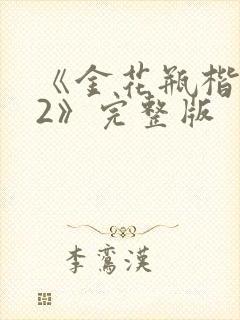 《金花瓶楷
2》完整版
李鸾漢